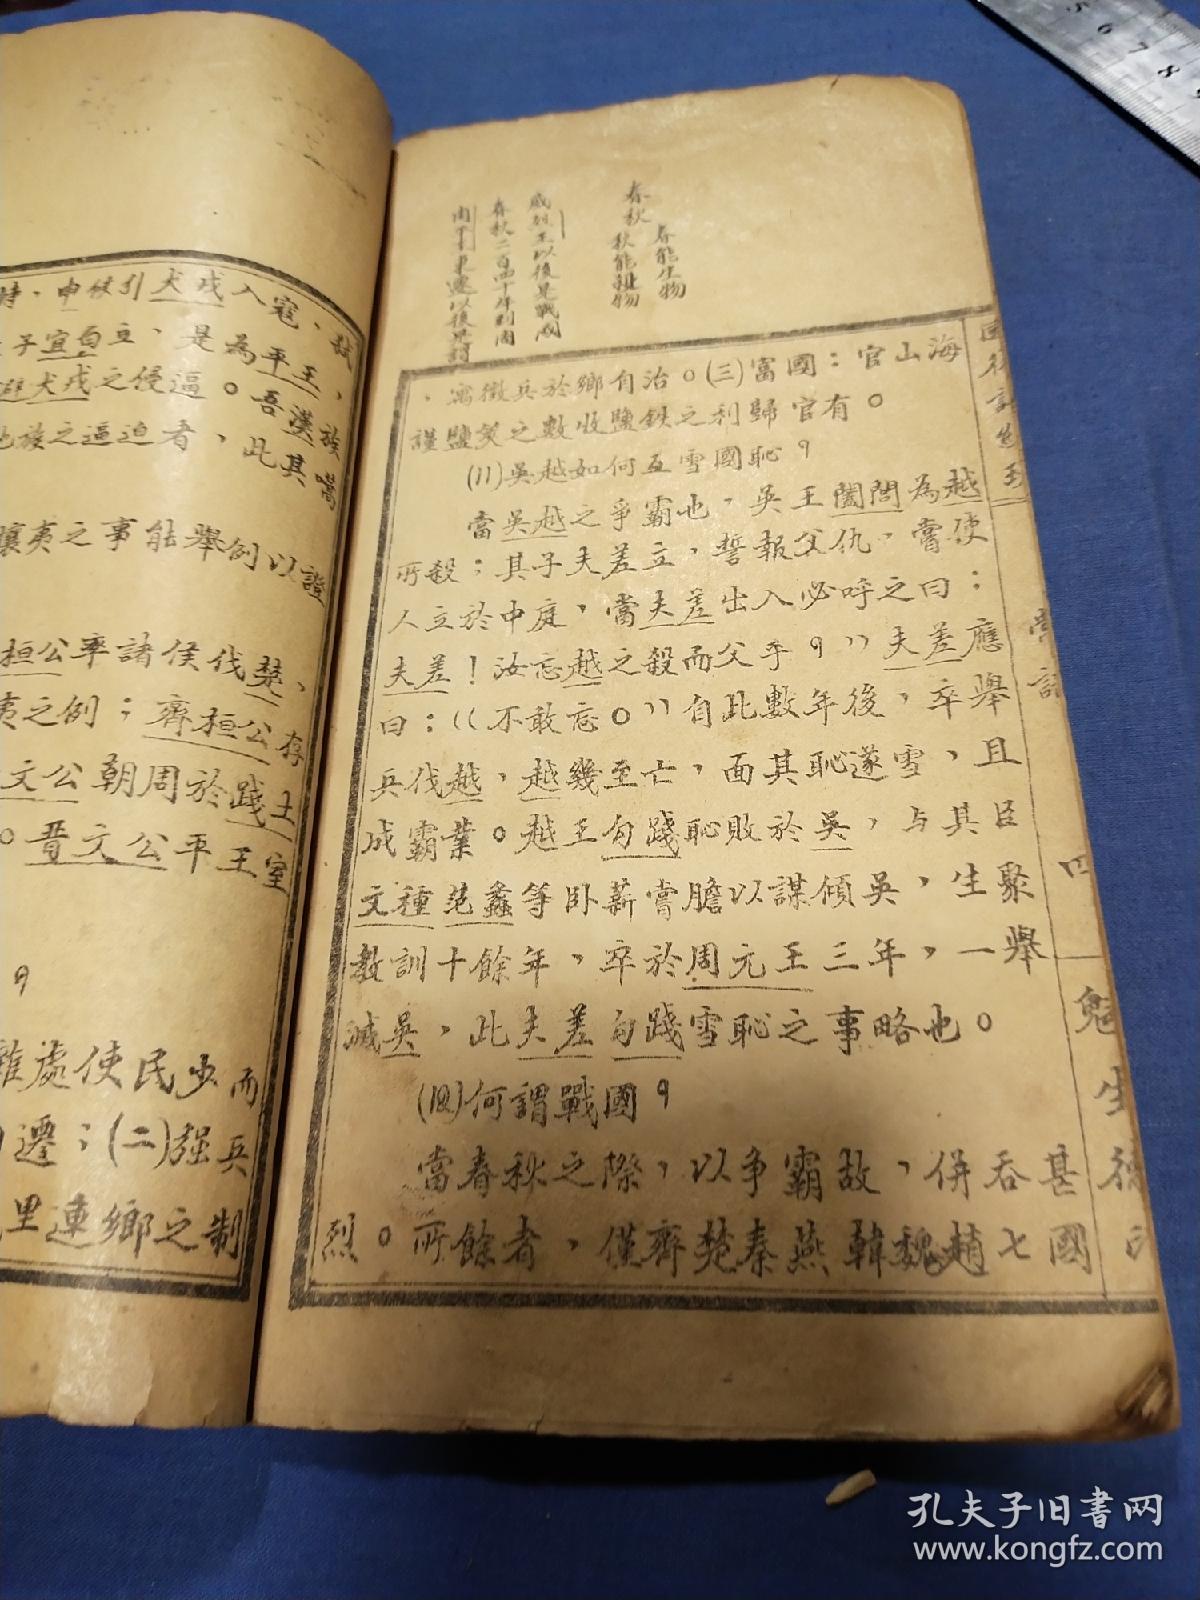 時、申侯引犬戎入寇、弒
子宜臼立、是為平王，
避犬戎之侵逼。吾漢族
他族之逼迫者，此其嚆
攘夷之事能舉例以證
桓公率諸侯伐楚，
夷之例；齊桓公存
文公朝周於踐土
。晋文公平王室
？
雜處使民少而
遷；(二)强兵
里連鄉之制
春能生物
春秋 秋能殺物
威烈王以後是戰國
春秋二百四十年則周
周平王東遷以後是封
、寓徵兵於鄉自治。(三)富國：官山海
謹鹽筴之數收鹽鉄之利歸官有。
(川)吳越如何互雪國恥？
當吳越之爭霸也，吳王闔閭為越
所殺；其子夫差立，誓報父仇，嘗使
人立於中庭，當夫差出入必呼之曰：
夫差！汝忘越之殺而父乎？))夫差應
曰：((不敢忘。))自此數年後，卒舉
兵伐越，越幾至亡，面其恥遂雪，且
成霸業。越王勾踐恥敗於吳，与其臣
文種范蠡等卧薪嘗膽以謀傾吳，生聚
教訓十餘年，卒於周元王三年，一舉
滅吳，此夫差勾踐雪恥之事略也。
(四)何謂戰國？
當春秋之際，以争霸故，併吞甚
烈。所餘者，僅齊楚秦燕韓魏趙七國
四
魁生德印
5 6 7 8
孔夫子旧书网
www.kongfz.com